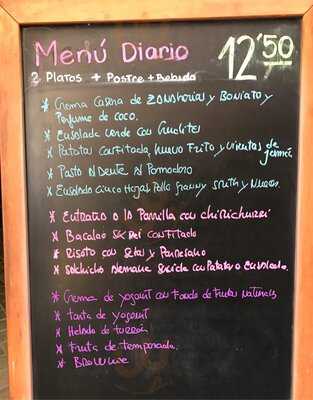 Menú Diario
12'50
2 Platos + Postre + Bebida
* Crema Casera de Zanahorias y Boniato y
Perfume de coco.
* Ensalada verde con
* Patatas confitadas, huevo Frito y virutas de
jamón
* Pasta al Dente al Pomodoro
* Ensalada Cinco Hojas, Pollo Granny Smith y Nueces.
* Entraña a la Parrilla con chimichurri
* Bacalao Confitado
* Risoto con Setas y Parmesano
* Salchicha Alemana con Patatas o Ensalada.
* Crema de yogourt con Fondo de frutas Naturales
* Tarta de yogourt
* Helado de turrón
* Fruta de temporada.
* Brownie